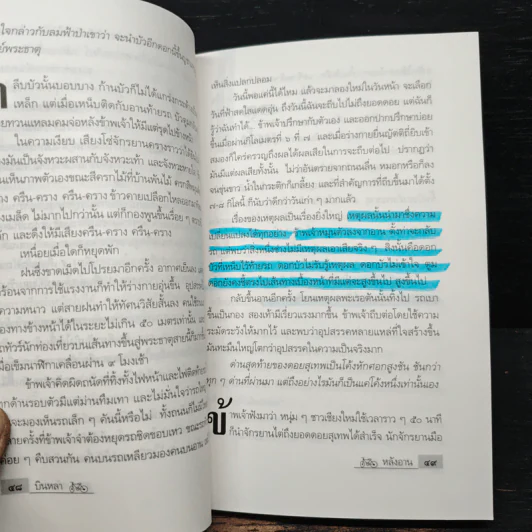 ใจกล่าวกับลมฟ้าป่าเขาว่า จะนำบัวอีกดอกนี้ขึ้นบูชา
ย์พระธาตุ
ลีบบัวนั้นบอบบาง ก้านบัวก็ไม่ได้แกร่งกร
เหล็ก แต่เมื่อเหน็บติดกับอานท้ายรถ
ายทวนแหลมคมจ่อหลังข้าพเจ้าให้มีแต่รุดไปข้างหน้า
ในความเงียบ เสียงโซ่จักรยานครางราวว่าได้
งมันเป็นจังหวะผสานกับจังหวะเท้า และจังหวะหายใจ
เห็นภาพตัวเองขณะสีครกไม้ที่บ้านพักไม้ ครกสีของ
อง ครืน-คราง ครืน-คราง ข้าวคายเปลือกไหลออก
งเมล็ด ไม่มากไปกว่านั้น แต่ก็กองพูนขึ้นเรื่อย ๆ
ก และดึงให้มีเสียงครืน-คราง ครืน-คราง
เหนื่อยเมื่อใดก็หยุดพัก
ฝนซึ่งขาดเม็ดไปโปรยมาอีกครั้ง อากาศเย็นลง
เรือนจากการใช้แรงงานก็ทำให้ร่างกายอุ่นขึ้น
ความหนาว แต่สายฝนทำให้ทัศนวิสัยสั้นลง
องทางข้างหน้าได้ในระยะไม่เกิน ๕๐ เมตรเท่านั้น
ถทัวร์นักท่องเที่ยวบนเส้นทางขึ้นสู่พระธาตุสายนี้ก็
เมื่อเข็มนาฬิกาเคลื่อนผ่าน ๔ โมงเช้า
ข้าพเจ้าคิดผิดถนัดที่ทิ้งทั้งไฟหน้าและไฟ
กด้านรอบตัวมีแต่ม่านทึมเทา และไม่มั่นใจว่ารถ
จะมองเห็นรถเล็ก ๆ คันนี้หรือไม่
ายครั้งที่ข้าพเจ้าจำต้องหยุดรถชิดขอบเหว
ค่อย ๆ คืบสวนกัน คนบนรถเหลียวมองคนบนอาน
๔๘ บินหลา
เห็นสิ่งแปลกปลอม
วันนี้พอแค่นี้ได้ไหม แล้วจะมาลองใหม่ในวันหน้า จะเลือก
วันที่ฟ้าสดใสแดดอุ่น ถึงวันนี้ฉันจะถีบไปไม่ถึงยอดดอย แต่ฉันก็
รู้ว่าฉันทำได้... ข้าพเจ้าปรึกษากับตัวเอง และออกปากปรึกษาบ่อย
ขึ้นเมื่อผ่านกิโลเมตรที่ ๖ ที่ ๗ และเมื่อร่างกายยื่นญัตติยี่ยับเข้า
สมองก็ใคร่ครวญถึงผลได้ผลเสียในการจะถีบต่อไป ปรากฏว่า
มันมีแต่ผลเสียทั้งนั้น ไม่ว่าอันตรายจากถนนลื่น หมอกหรือก็ลง
จนขุ่นขาว น้ำในกระติกก็เกลี้ยง และที่สำคัญการที่ถีบขึ้นมาได้ตั้ง
๗-๘ กิโลนี่ ก็นับว่าดีกว่าวันเก่า ๆ มากแล้ว
เรื่องของเหตุผลเป็นเรื่องยิ่งใหญ่ เหตุผลนั้นนำมาซึ่งความ
เปลี่ยนแปลงได้ทุกอย่าง ข้าพเจ้าหมุนตัวลงจากอาน ตั้งท่าจะกลับ
รถ แต่พบว่าสิ่งหนึ่งช่างไม่มีเหตุผลเอาเสียจริง ๆ สิ่งนั้นคือดอก
บัวที่เหน็บไว้ท้ายรถ ดอกบัวไม่รับรู้เหตุผล ดอกบัวไม่เข้าใจ ตูม
ดอกยังคงชี้ตรงไปเส้นทางเบื้องหน้าที่มีแต่จะสูงขึ้นไป สูงขึ้นไป
กลับขึ้นอานอีกครั้ง โยนเหตุผลพะเรอตันนั้นทิ้งไป รถเบา
ขึ้นเป็นกอง สองเท้ามีเรี่ยวแรงมากขึ้น ข้าพเจ้าถีบต่อโดยใช้ความ
ระมัดระวังให้มากไว้ และพบว่าอุปสรรคหลายแหล่ที่ใจสร้างขึ้น
มันทะมึนใหญ่โตกว่าอุปสรรคในความเป็นจริงมาก
ด่านสุดท้ายของดอยสุเทพเป็นโค้งหักศอกสูงชัน ชันกว่า
ทุก ๆ ด่านที่ผ่านมา แต่ถึงอย่างไรมันก็เป็นแค่โค้งหนึ่งเท่านั้นเอง
ข้าพเจ้าฟังมาว่า หนุ่ม ๆ ชาวเชียงใหม่ใช้เวลาราว ๆ ๕๐ นาที
ก็นำจักรยานไต่ถึงยอดดอยสุเทพได้สำเร็จ นักจักรยานมือ
หลังอาน ๔๙